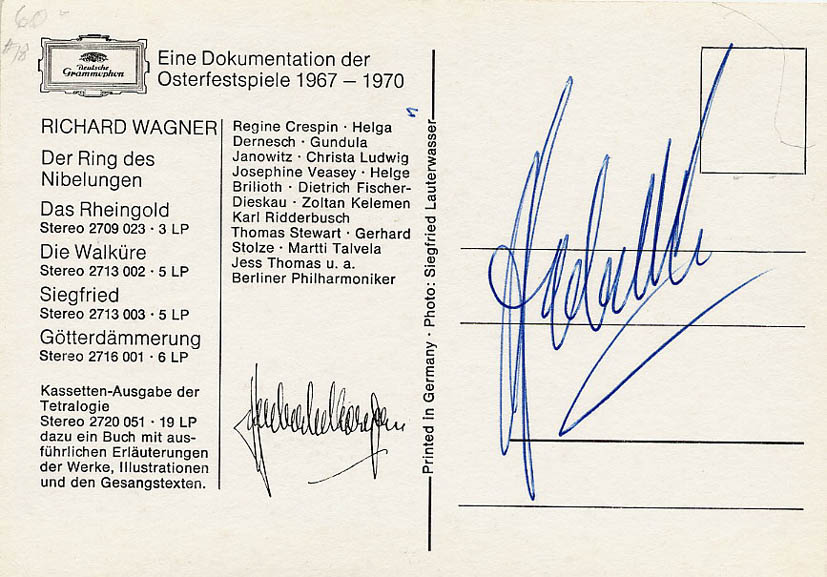 60-
#18
Deutsche
Grammophon
Eine Dokumentation der
Osterfestspiele 1967 – 1970
RICHARD WAGNER
Der Ring des
Nibelungen
Das Rheingold
Stereo 2709 023 · 3 LP
Die Walküre
Stereo 2713 002 · 5 LP
Siegfried
Stereo 2713 003 · 5 LP
Götterdämmerung
Stereo 2716 001 · 6 LP
Kassetten-Ausgabe der
Tetralogie
Stereo 2720 051 · 19 LP
dazu ein Buch mit aus-
führlichen Erläuterungen
der Werke, Illustrationen
und den Gesangstexten.
Regine Crespin · Helga
Dernesch · Gundula
Janowitz · Christa Ludwig
Josephine Veasey · Helge
Brilioth · Dietrich Fischer-
Dieskau · Zoltan Kelemen
Karl Ridderbusch
Thomas Stewart · Gerhard
Stolze · Martti Talvela
Jess Thomas u. a.
Berliner Philharmoniker
Printed in Germany · Photo: Siegfried Lauterwasser